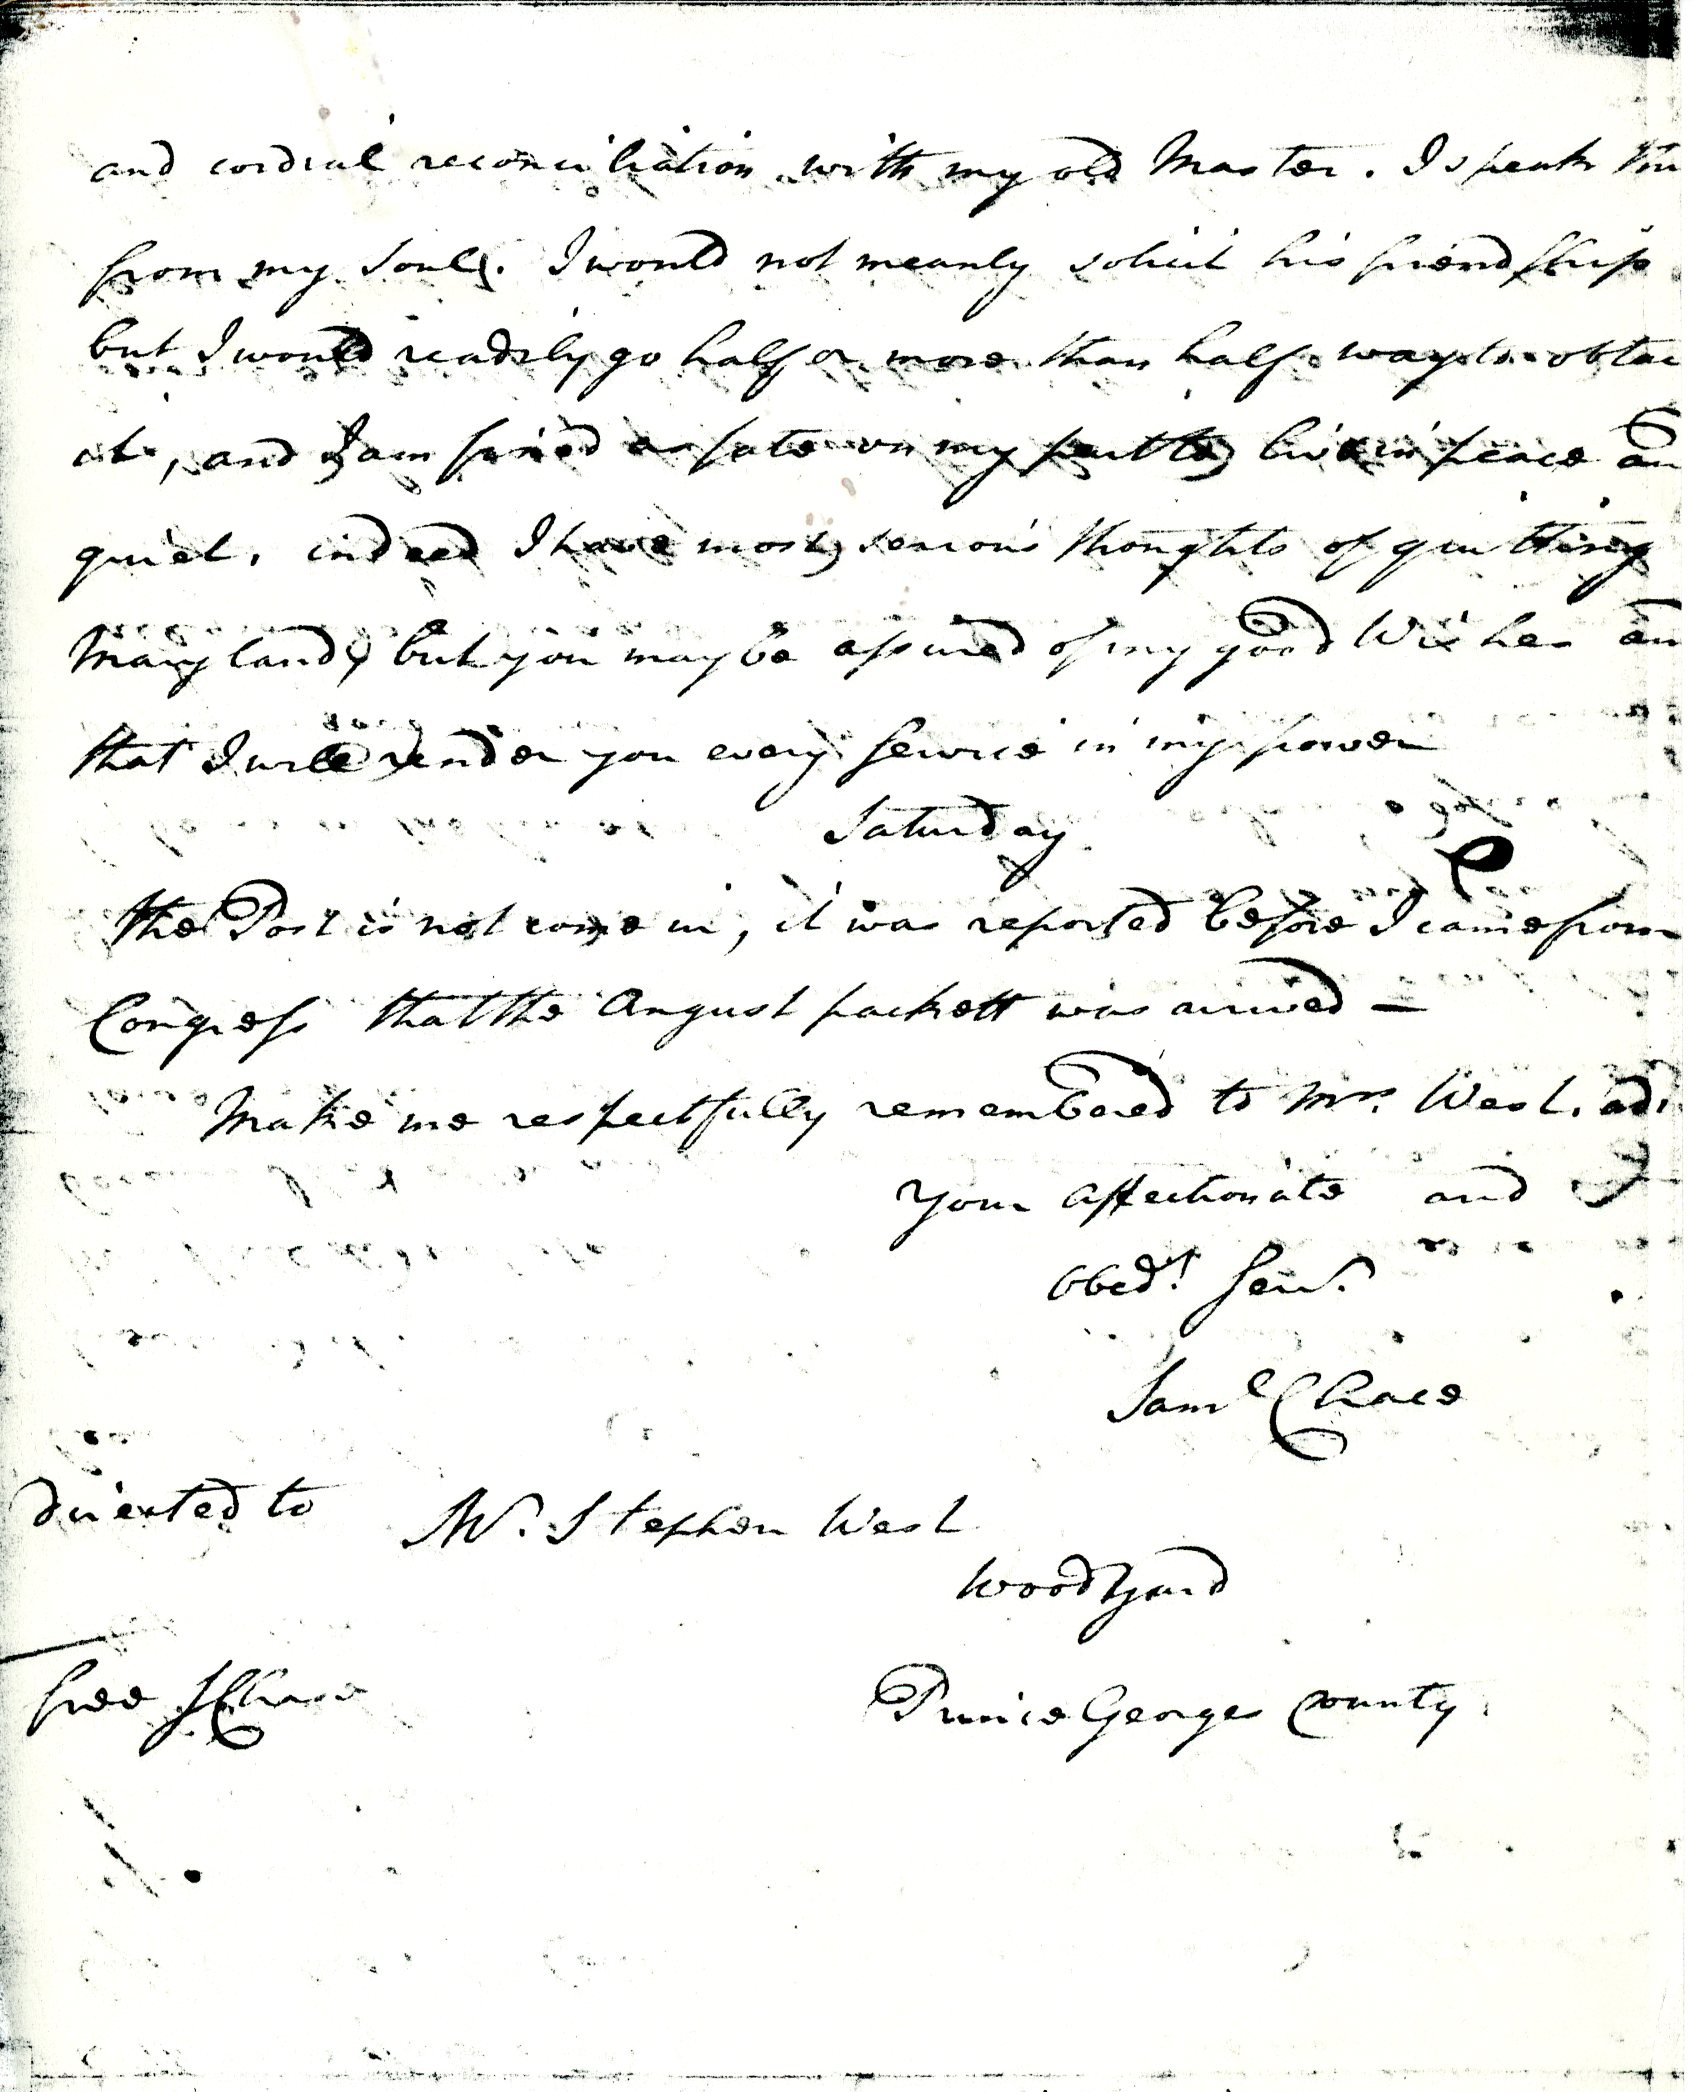 and cordial reconciliation with my old Master. I speak
from my Soul. I would not meanly solicit his friendship
but I would readily go half or more than half way to obtai
it, and I am on my part to live in peace an
quiet. indeed I have most serious thoughts of quitting
Maryland, but you may be assured of my good Wishes an
that I will render you every Service in my power
Saturday
the Post is not come in, it was reported before I came from
Congress that the August packett was arrived —
Make me respectfully remembered to Mrs. West. adi
Your affectionate and
obedt. Servt.
Saml Chace
directed to Mr. Stephen West
Woodyard
free S Chase
Prince Georges County.